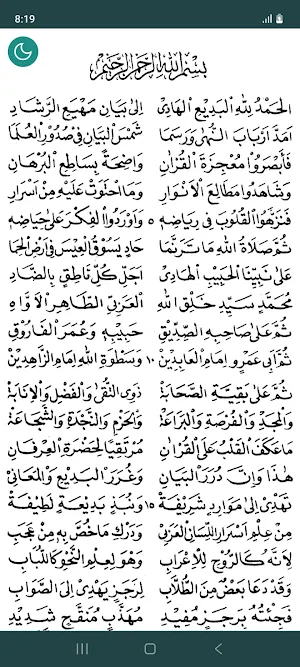 8:19
بِسْمِ اللهِ الرَّحْمٰنِ الرَّحِيمِ
الْحَمْدُ لِلّٰهِ الْبَدِيعِ الْهَادِي إِلَى بَيَانِ مَهْيَعِ الرَّشَادِ
أَمَدَّ أَرْبَابَ النُّهَى وَرَسَمَا شَمْسَ الْبَيَانِ فِي صُدُورِ الْعُلَمَا
فَأَبْصَرُوا مُعْجِزَةَ الْقُرْآنِ وَاضِحَةً بِسَاطِعِ الْبُرْهَانِ
وَشَاهَدُوا مَطَالِعَ الْأَنْوَارِ وَمَا احْتَوَتْ عَلَيْهِ مِنْ أَسْرَارِ
فَنَزَّهُوا الْقُلُوبَ فِي رِيَاضِهِ ٥ وَأَوْرَدُوا الْفِكْرَ عَلَى حِيَاضِهِ
ثُمَّ صَلَاةُ اللهِ مَا تَرَنَّمَا حَادٍ يَسُوقُ الْعِيسَ فِي أَرْضِ الْحِمَا
عَلَى نَبِيِّنَا الْحَبِيبِ الْهَادِي أَجَلِّ كُلِّ نَاطِقٍ بِالضَّادِ
مُحَمَّدٍ سَيِّدِ خَلْقِ اللهِ الْعَرَبِيِّ الطَّاهِرِ الْأَوَّاهِ
ثُمَّ عَلَى صَاحِبِهِ الصِّدِّيقِ حَبِيبِهِ وَعُمَرَ الْفَارُوقِ
ثُمَّ أَبِي عَمْرٍو إِمَامِ الْعَابِدِينْ ١٠ وَسَطْوَةِ اللهِ إِمَامِ الزَّاهِدِينْ
ثُمَّ عَلَى بَقِيَّةِ الصَّحَابَةْ ذَوِي التُّقَى وَالْفَضْلِ وَالْإِنَابَةْ
وَالْمَجْدِ وَالْفُرْصَةِ وَالْبَرَاعَةْ وَالْحَزْمِ وَالنَّجْدَةِ وَالشَّجَاعَةْ
مَا عَكَفَ الْقَلْبُ عَلَى الْقُرْآنِ مُرْتَقِيًا لِحَضْرَةِ الْعِرْفَانِ
هَذَا وَإِنَّ دُرَرَ الْبَيَانِ وَغُرَرَ الْبَدِيعِ وَالْمَعَانِي
تَهْدِي إِلَى مَوَارِدٍ شَرِيفَةْ ١٥ وَنُبَذٍ بَدِيعَةٍ لَطِيفَةْ
مِنْ عِلْمِ أَسْرَارِ اللِّسَانِ الْعَرَبِي وَدَرْكِ مَا خُصَّ بِهِ مِنْ عَجَبِ
لِأَنَّهُ كَالرُّوحِ لِلْإِعْرَابِ وَهُوَ لِعِلْمِ النَّحْوِ كَاللُّبَابِ
وَقَدْ دَعَا بَعْضٌ مِنَ الطُّلَّابِ لِرَجَزٍ يَهْدِي إِلَى الصَّوَابِ
فَجِئْتُهُ بِرَجَزٍ مُفِيدِ مُهَذَّبٍ مُنَقَّحٍ سَدِيدِ